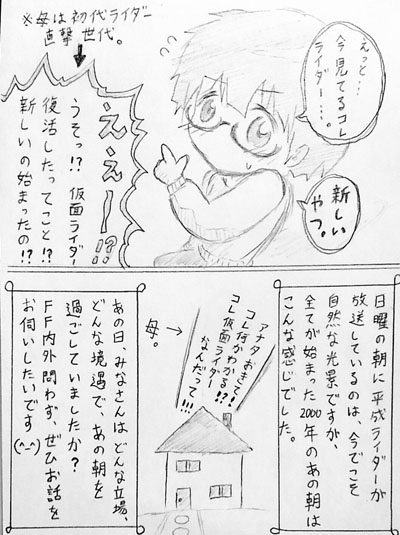 えっと…
今見てるコレ
ライダー…。
新しい
やつ。
※母は初代ライダー
直撃世代。
ええぇー!!?
うそっ!? 仮面ライダー
復活したってこと!?
新しいの始まったの!?
日曜の朝に平成ライダーが
放送しているのは、今でこそ
自然な光景ですが、
全てが始まった2000年のあの朝は
こんな感じでした。
アナタ おきて!!
コレ何かわかる!?
コレ仮面ライダー
なんだって!!!
母。
あの日、みなさんはどんな立場、
どんな境遇で、あの朝を
過ごしていましたか?
FF内外問わず、ぜひお話を
お伺いしたいです
(^-^)